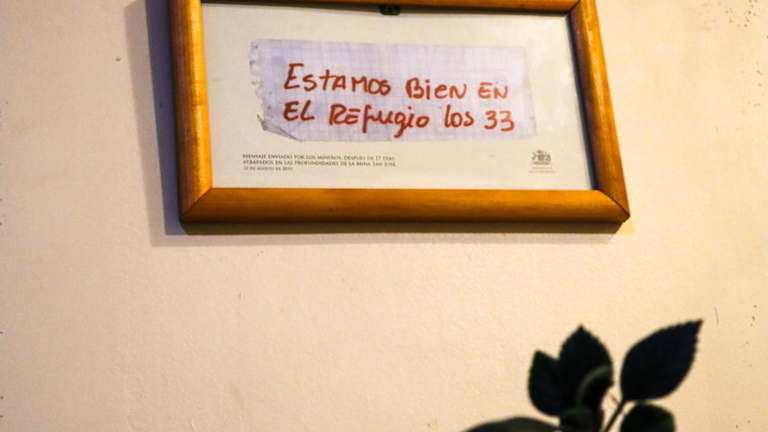 ESTAMOS BIEN EN
EL REFUGIO los 33
MENSAJE ENVIADO POR LOS MINEROS, DESPUES DE 17 DIAS
ATRAPADOS EN LAS PROFUNDIDADES DE LA MINA SAN JOSE,
22 DE AGOSTO DE 2010